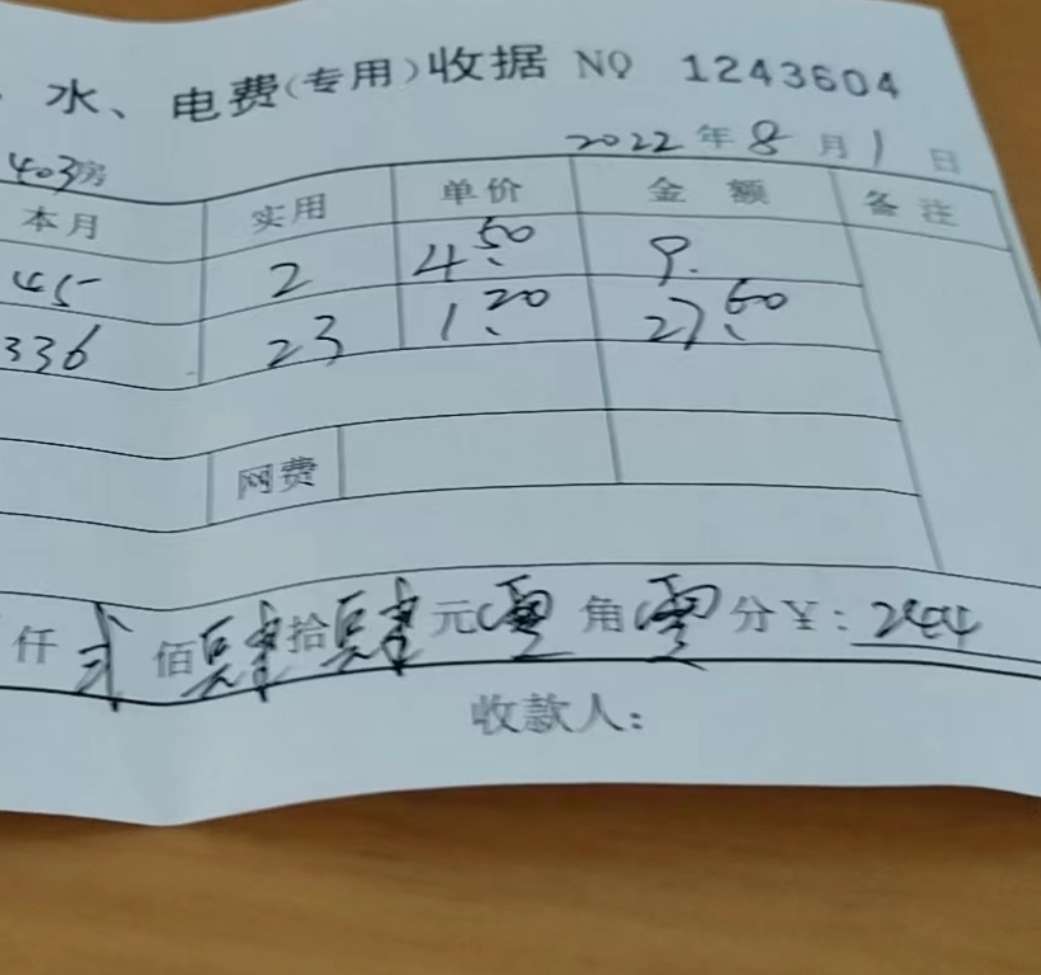 水、电费(专用)收据 NO 1243604
2022年8月1日
403房
本月 实用 单价 金额 备注
45 2 4.50 9.
336 23 1.20 27.60
网费
仟弍佰肆拾肆元零角零分￥:244
收款人: